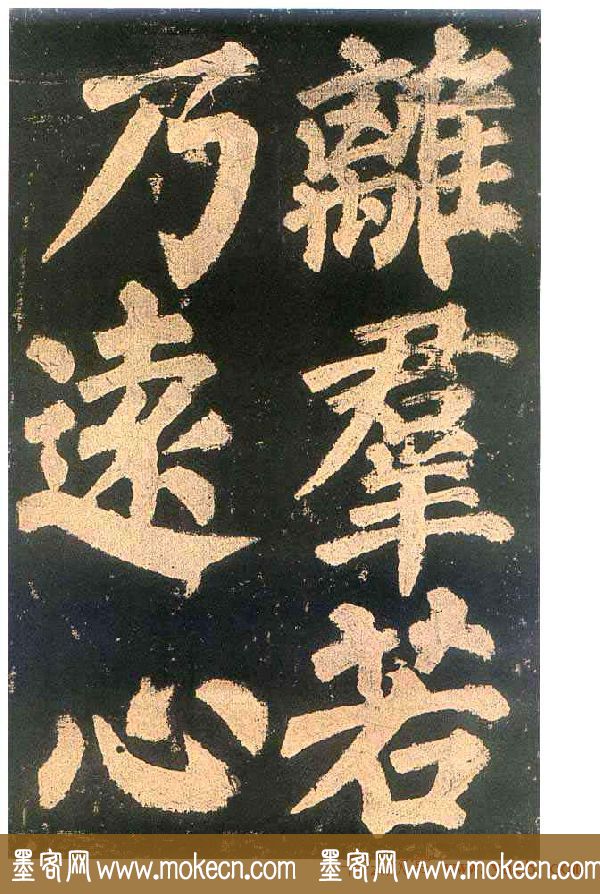 離羣若
乃遠心
墨客网 www.mokecn.com 墨客网 www.mokecn.com